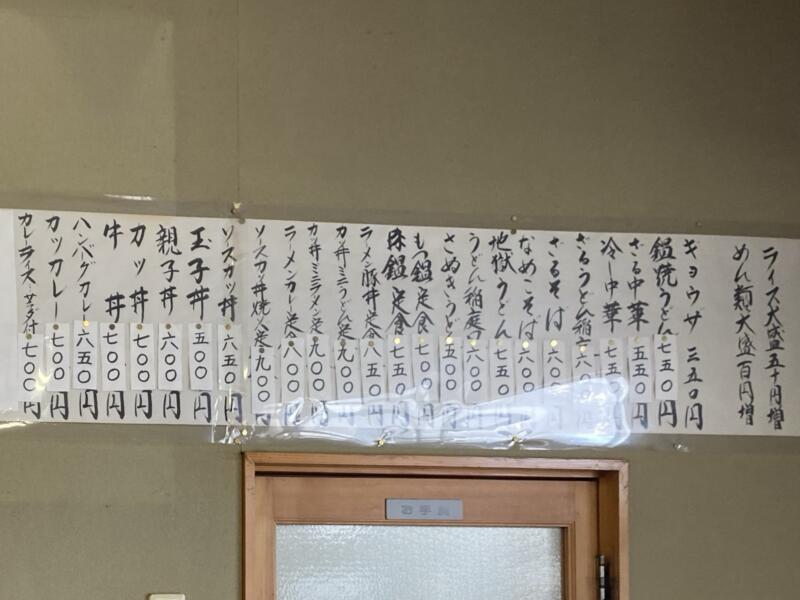 ライス大盛五十円増
めん類大盛百円増
キョウザ 三五〇円
鍋焼うどん 七五〇円
ざる中華 五五〇円
冷し中華 七五〇円
ざるうどん 稲庭 六〇〇円
ざるそば 六〇〇円
なめこそば 六〇〇円
地獄うどん 七五〇円
うどん稲庭 六〇〇円
さぬきうどん 五〇〇円
もつ鍋定食 七〇〇円
豚鍋定食 七五〇円
ラーメン豚丼定食 八五〇円
カツ丼ミニうどん定 九〇〇円
カツ丼ミニラメン定 九〇〇円
ラーメンカレー定食 八〇〇円
ソースカツ丼焼人定 九〇〇円
ソースカツ丼 六五〇円
玉子丼 五〇〇円
親子丼 六〇〇円
カツ丼 七〇〇円
牛丼 七〇〇円
ハンバグカレー 六五〇円
カツカレー 七〇〇円
カレーライス サラダ付 七〇〇円
お手洗